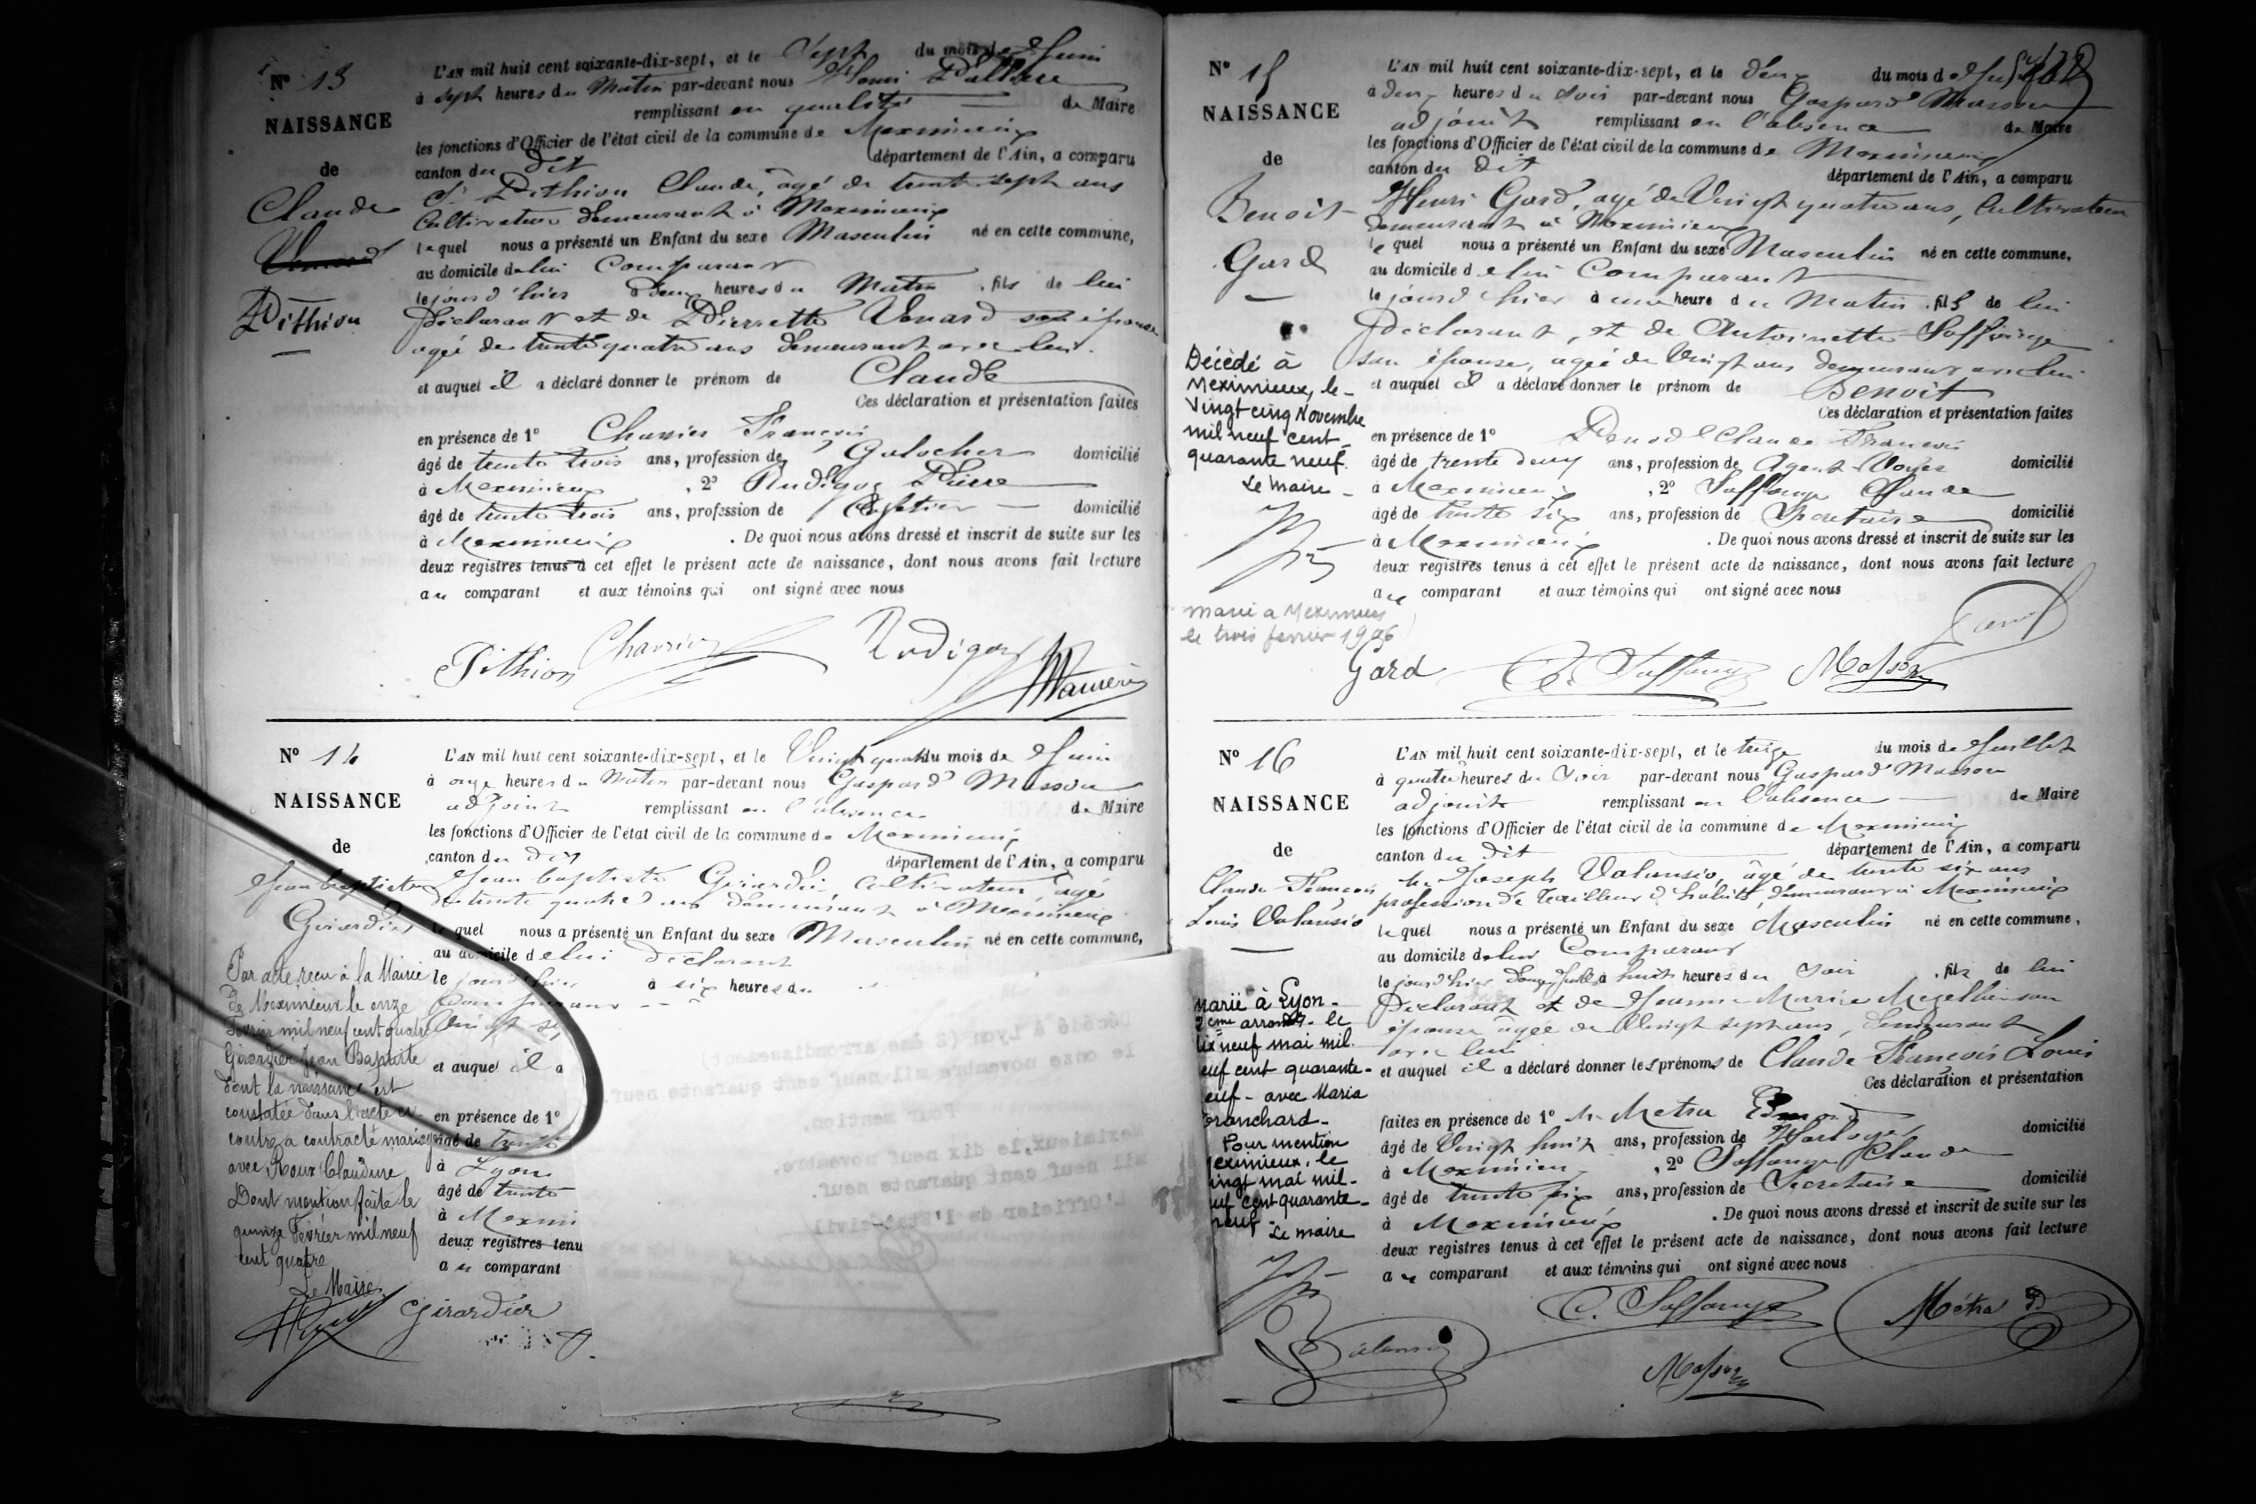 N° 13
NAISSANCE
de
Claude
Pithiou
L'AN mil huit cent soixante-dix-sept, et le Sept du mois de Juin
à sept heures du Matin par-devant nous Henri
remplissant en qualité de Maire
les fonctions d'Officier de l'état civil de la commune de Meximieux
canton du dit département de l'Ain, a comparu
Sr Pithiou Claude, âgé de trente sept ans
Cultivateur demeurant à Meximieux
lequel nous a présenté un Enfant du sexe Masculin né en cette commune,
au domicile de lui Comparant
le jour d'hier à deux heures du Matin, fils de lui
Déclarant et de Pierrette Venard son épouse
agée de trente quatre ans demeurant avec lui.
et auquel il a déclaré donner le prénom de Claude
Ces déclaration et présentation faites
en présence de 1° Charrier François
âgé de trente trois ans, profession de Galocher domicilié
à Meximieux, 2° Rudigoz Pierre
âgé de trente trois ans, profession de domicilié
à Meximieux. De quoi nous avons dressé et inscrit de suite sur les
deux registres tenus à cet effet le présent acte de naissance, dont nous avons fait lecture
au comparant et aux témoins qui ont signé avec nous
Pithiou Charrier Rudigoz
N° 14
NAISSANCE
de
Jean Baptiste
Girardier
L'AN mil huit cent soixante-dix-sept, et le Vingt quatre du mois de Juin
à onze heures du Matin par-devant nous Gaspard Masson
adjoint remplissant en l'absence de Maire
les fonctions d'Officier de l'état civil de la commune de Meximieux
canton du dit département de l'Ain, a comparu
Jean baptiste Girardier, cultivateur, âgé
de trente quatre ans demeurant à Meximieux
lequel nous a présenté un Enfant du sexe Masculin né en cette commune,
au domicile de lui déclarant
le jour d'hier à six heures du
Vingt
et auquel il a
en présence de 1°
âgé de trente
à Lyon
âgé de trente
à Meximi
deux registres tenu
au comparant
Par acte reçu à la Mairie
de Meximieux le onze
Février mil neuf cent quatre
Girardier Jean Baptiste
dont la naissance est
constatée dans l'acte ci-
contre a contracté mariage
avec Roux Claudine
Dont mention faite le
quinze Février mil neuf
cent quatre
Le Maire,
Girardier
Décédé à Lyon (2 ème arrondissement)
le onze novembre mil neuf cent quarante neuf.
Pour mention.
Meximieux, le dix neuf novembre,
mil neuf cent quarante neuf.
L'Officier de l'Etat-civil
N° 15
NAISSANCE
de
Benoit
Gard
L'AN mil huit cent soixante-dix-sept, et le deux du mois de Juillet
à deux heures du Soir par-devant nous Gaspard Masson
adjoint remplissant en l'absence de Maire
les fonctions d'Officier de l'état civil de la commune de Meximieux
canton du dit département de l'Ain, a comparu
Henri Gard, agé de Vingt quatre ans, Cultivateur
demeurant à Meximieux
lequel nous a présenté un Enfant du sexe Masculin né en cette commune,
au domicile de lui Comparant
le jour d'hier à une heure du Matin, fils de lui
Déclarant, et de Antoinette
son épouse, agée de Vingt ans demeurant avec lui
et auquel il a déclaré donner le prénom de Benoit
Ces déclaration et présentation faites
en présence de 1° Claude François
âgé de trente deux ans, profession de Agent Voyer domicilié
à Meximieux, 2° Claude
âgé de trente six ans, profession de Secretaire domicilié
à Meximieux. De quoi nous avons dressé et inscrit de suite sur les
deux registres tenus à cet effet le présent acte de naissance, dont nous avons fait lecture
au comparant et aux témoins qui ont signé avec nous
Décédé à
Meximieux, le
Vingt cinq Novembre
mil neuf cent
quarante neuf.
Le Maire
Marié a Meximieux
le trois fevrier 1906
Gard Masson
N° 16
NAISSANCE
de
Claude François
Louis Valansio
L'AN mil huit cent soixante-dix-sept, et le treize du mois de Juillet
à quatre heures du Soir par-devant nous Gaspard Masson
adjoint remplissant en l'absence de Maire
les fonctions d'Officier de l'état civil de la commune de Meximieux
canton du dit département de l'Ain, a comparu
Mr Joseph Valansio, âgé de trente six ans
profession de Tailleur d'habits, demeurant à Meximieux
lequel nous a présenté un Enfant du sexe Masculin né en cette commune,
au domicile de lui Comparant
le jour d'hier douze Juillet à huit heures du Soir, fils de lui
Déclarant et de Jeanne Marie son
épouse âgée de Vingt sept ans, demeurant
avec lui
et auquel il a déclaré donner les prénoms de Claude François Louis
Ces déclaration et présentation
faites en présence de 1° Mr Metra
âgé de Vingt huit ans, profession de Horloger domicilié
à Meximieux, 2° Claude
âgé de trente six ans, profession de Secretaire domicilié
à Meximieux. De quoi nous avons dressé et inscrit de suite sur les
deux registres tenus à cet effet le présent acte de naissance, dont nous avons fait lecture
au comparant et aux témoins qui ont signé avec nous
Marié à Lyon
2eme arrondt. le
dix neuf mai mil
neuf cent quarante
neuf - avec Maria
Branchard
Pour mention
Meximieux, le
vingt mai mil
neuf cent quarante
neuf
Le maire
Métra
Masson